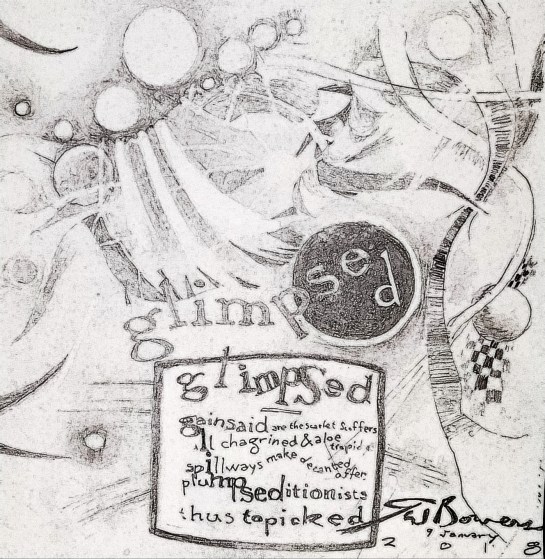 glimpsed
glimpsed
gainsaid are the scarlet scoffers
ill chagrined & aloe
spillways make decanted offer
plump seditionists
thus topicked
Bowers
9 January
2 0 1 8